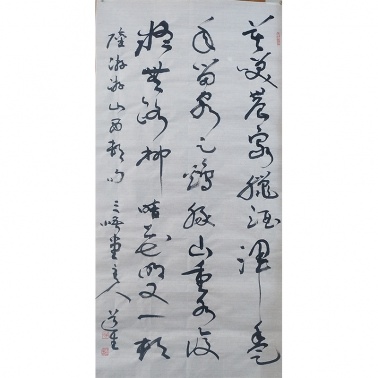 莫笑農家臘酒渾豐
年留客足鷄豚山重水復
疑無路柳暗花明又一邨
陸游游山西邨句 三 堂主人